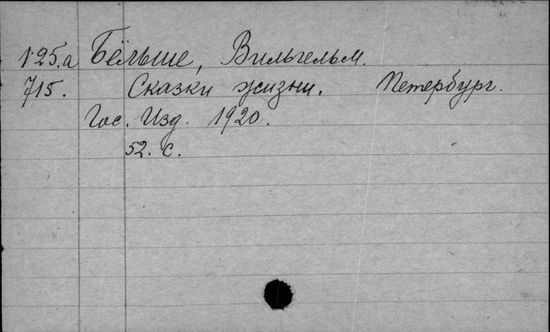 1.25.а Бёльше, Вильгельм.
715. Сказки жизни. Петербург.
Гос. Изд. 1920.
52. с.